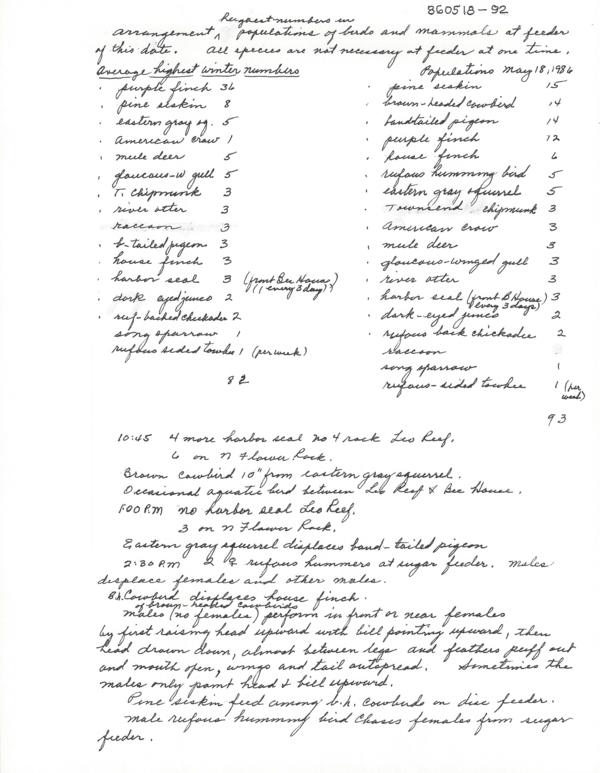 860518-92
highest numbers in
arrangement ^ populations of birds and mammals at feeder
of this date. All species are not necessary at feeder at one time.
Average highest winter numbers
· purple finch 36
· pine siskin 8
· eastern gray sq. 5
· American crow 1
· mule deer 5
· glaucous-w gull 5
· T. Chipmunk 3
· river otter 3
raccoon 3
· b-tailed pigeon 3
· house finch 3
· harbor seal 3 (front Bee House)
(1 every 3 day)?
· dark eyed junco 2
· ruf-backed chickadee 2
song sparrow 1
rufous sided towhee 1 (per week)
82
Populations May 18, 1986
· pine siskin 15
· brown-headed cowbird 14
· bandtailed pigeon 14
· purple finch 12
· house finch 6
· rufous humming bird 5
· eastern gray squirrel 5
· Townsend chipmunk 3
· American crow 3
· mule deer 3
· glaucous-winged gull 3
· river otter 3
· harbor seal (front B House) 3
1 every 3 days)
· dark-eyed junco 2
· rufous back chickadee 2
raccoon
song sparrow 1
rufous-sided towhee 1 (per
week)
93
10:45 4 more harbor seal no 4 rock Leo Reef.
6 on N Flower Rock.
Brown Cowbird 10" from eastern gray squirrel.
Occasional aquatic bird between Leo Reef & Bee House.
1:00 P.M no harbor seal Leo Reef.
3 on N Flower Rock.
Eastern gray squirrel displaces band-tailed pigeon
2:30 P.M 2 ♀ rufous hummers at sugar feeder. males
displace females and other males.
B.h. Cowbird displaces house finch.
of brown-headed cowbirds
males (no females) perform in front or near females
by first raising head upward with bill pointing upward, then
head drawn down, almost between legs and feathers puff out
and mouth open, wings and tail outspread. Sometimes the
males only point head & bill upward.
Pine siskin feed among b.h. cowbirds on disc feeder.
male rufous humming bird chases females from sugar
feeder.